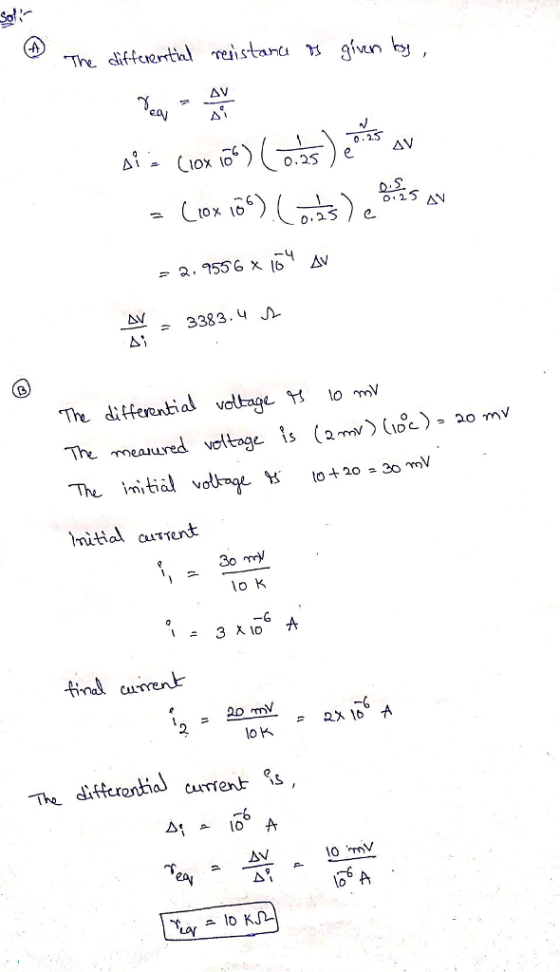 Sol:-
(A) The differential resistance is given by,
r_eq = ΔV/Δi
Δi = (10x 10^-6) (1/0.25) e^(v/0.25) ΔV
= (10x 10^-6) (1/0.25) e^(0.5/0.25) ΔV
= 2.9556 x 10^-4 ΔV
ΔV/Δi = 3383.4 Ω
(B)
The differential voltage is 10 mV
The measured voltage is (2mV) (10°c) = 20 mV
The initial voltage is 10+20 = 30 mV
Initial current
i₁ = 30 mV/10 K
i = 3 x 10^-6 A
final current
i₂ = 20 mV/10K = 2x 10^-6 A
The differential current is,
Δi = 10^-6 A
r_eq = ΔV/Δi = 10 mV/10^-6 A .
r_eq = 10 KΩ